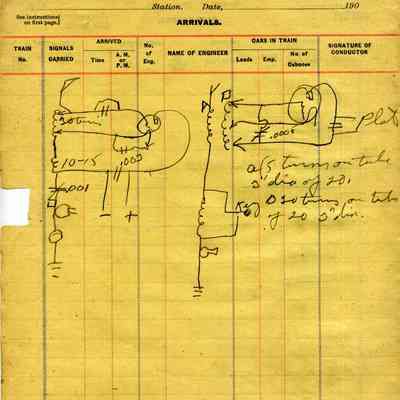 Station. Date, 190
(See instructions on first page.)
ARRIVALS.
TRAIN No.
SIGNALS CARRIED
ARRIVED
Time
A. M. or P. M.
No. of Eng.
NAME OF ENGINEER
CARS IN TRAIN
Loads
Emp.
No. of Caboose
SIGNATURE OF CONDUCTOR
20 turns
10-15
.001
- +
.0005
Plate
turns on tube
3" dia of 20.
20 turns on tube
of 20 3" dia.